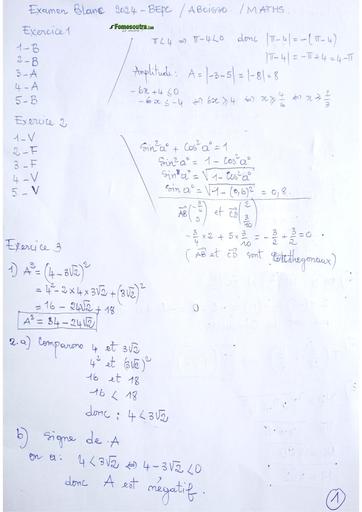 Examen Blanc 2024 - BEPC / ABOISSO / MATHS.
Fomesoutra.com
Exercice 1
1 - B
2 - B
3 - A
4 - A
5 - B
π < 4 ⇔ π - 4 < 0 donc |π - 4| = -(π - 4)
|π - 4| = -π + 4 = 4 - π
Amplitude : A = |-3 - 5| = |-8| = 8
-6x + 4 ≤ 0
-6x ≤ -4 ⇔ 6x ≥ 4 ⇔ x ≥ 4/6 ⇔ x ≥ 2/3
Exercice 2
1 - V
2 - F
3 - F
4 - V
5 - V
Sin²a° + Cos²a° = 1
Sin²a° = 1 - Cos²a°
Sin a° = √(1 - Cos²a°)
Sin a° = √(1 - (0,6)²) = 0,8.
AB(-3/4 ; 5) et CD(2 ; 3/10)
-3/4 × 2 + 5 × 3/10 = -3/2 + 3/2 = 0
(AB et CD sont orthogonaux)
Exercice 3
1) A² = (4 - 3√2)²
= 4² - 2 × 4 × 3√2 + (3√2)²
= 16 - 24√2 + 18
A² = 34 - 24√2
2. a) Comparons 4 et 3√2
4² et (3√2)²
16 et 18
16 < 18
donc : 4 < 3√2
b) Signe de A
on a : 4 < 3√2 ⇔ 4 - 3√2 < 0
donc A est négatif.
1